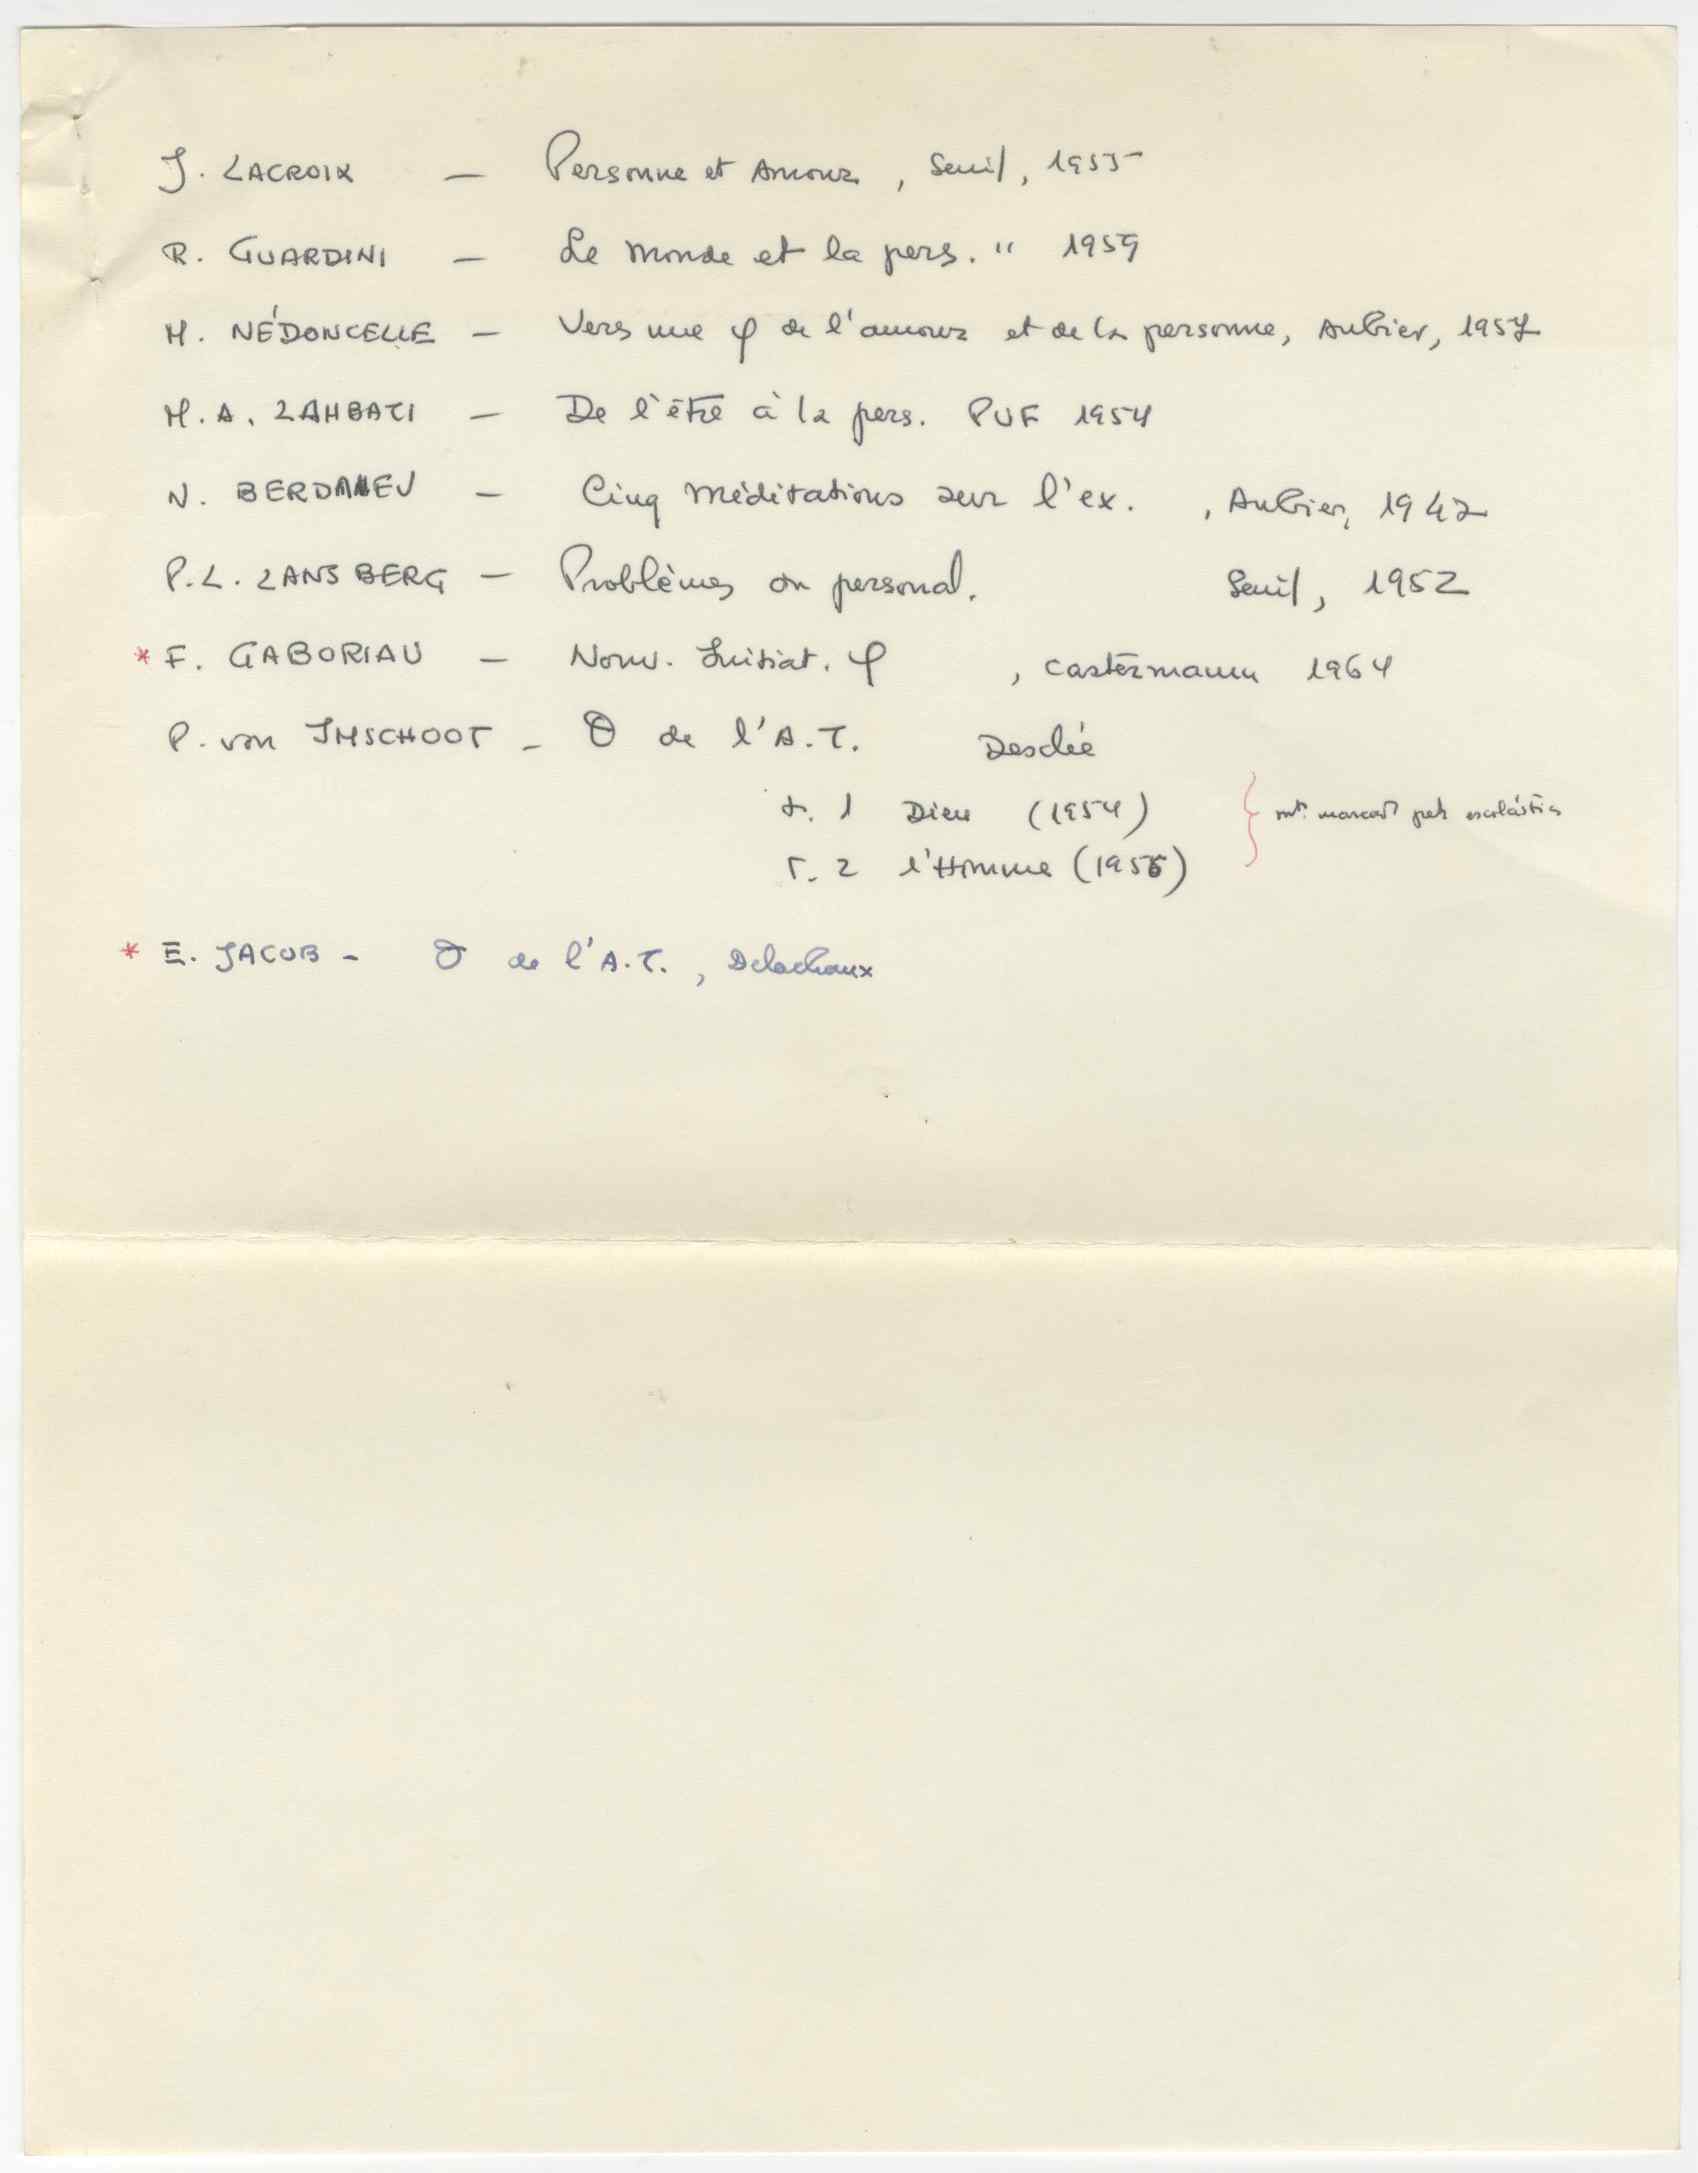 J. LACROIX — Personne et Amour, Seuil, 1955
R. GUARDINI — Le Monde et la pers. " 1959
M. NÉDONCELLE — Vers une φ de l'amour et de la personne, Aubier, 1957
M. A. LAHBATI — De l'être à la pers. PUF 1954
N. BERDAIEV — Cinq Méditations sur l'ex. , Aubier, 1942
P. L. LANSBERG — Problèmes du personal. Seuil, 1952
* F. GABORIAU — Nouv. Initiat. φ , Castermann 1964
P. von IMSCHOOT - Θ de l'A.T. Desclée
t. 1 Dieu (1954) } mt. marcado pela escolástica
T. 2 l'Homme (1956)
* E. JACOB - Θ de l'A.T., Delachaux